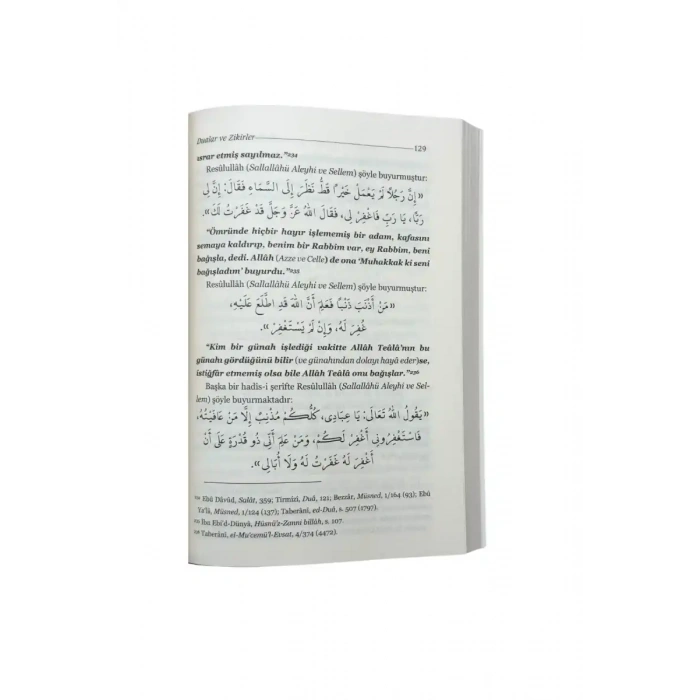 Dualar ve Zikirler
129
ısrar etmiş sayılmaz.”²³⁴
Resûlullâh (Sallallâhü Aleyhi ve Sellem) şöyle buyurmuştur:
«إِنَّ رَجُلًا لَمْ يَعْمَلْ خَيْرًا قَطُّ نَظَرَ إِلَى السَّمَاءِ فَقَالَ: إِنَّ لِي
رَبًّا، يَا رَبِّ فَاغْفِرْ لِي، فَقَالَ اللهُ عَزَّ وَجَلَّ قَدْ غَفَرْتُ لَكَ».
“Ömründe hiçbir hayır işlememiş bir adam, kafasını
semaya kaldırıp, benim bir Rabbim var, ey Rabbim, beni
bağışla, dedi. Allâh (Azze ve Celle) de ona ‘Muhakkak ki seni
bağışladım’ buyurdu.”²³⁵
Resûlullâh (Sallallâhü Aleyhi ve Sellem) şöyle buyurmuştur:
«مَنْ أَذْنَبَ ذَنْبًا فَعَلِمَ أَنَّ اللهَ قَدِ اطَّلَعَ عَلَيْهِ،
غُفِرَ لَهُ، وَإِنْ لَمْ يَسْتَغْفِرْ».
“Kim bir günah işlediği vakitte Allâh Teâlâ’nın bu
günahı gördüğünü bilir (ve günahından dolayı haya eder)se,
istiğfâr etmemiş olsa bile Allâh Teâlâ onu bağışlar.”²³⁶
Başka bir hadîs-i şerîfte Resûlullâh (Sallallâhü Aleyhi ve Sel-
lem) şöyle buyurmaktadır:
«يَقُولُ اللهُ تَعَالَى: يَا عِبَادِي، كُلُّكُمْ مُذْنِبٌ إِلَّا مَنْ عَافَيْتُهُ،
فَاسْتَغْفِرُونِي أَغْفِرْ لَكُمْ، وَمَنْ عَلِمَ أَنِّي ذُو قُدْرَةٍ عَلَى أَنْ
أَغْفِرَ لَهُ غَفَرْتُ لَهُ وَلَا أُبَالِي».
²³⁴ Ebû Dâvûd, Salât, 359; Tirmizî, Duâ, 121; Bezzâr, Müsned, 1/164 (93); Ebû
Ya’lâ, Müsned, 1/124 (137); Taberânî, ed-Duâ, s. 507 (1797).
²³⁵ İbn Ebi’d-Dünyâ, Hüsnü’z-Zanni billâh, s. 107.
²³⁶ Taberânî, el-Mu’cemü’l-Evsat, 4/374 (4472).